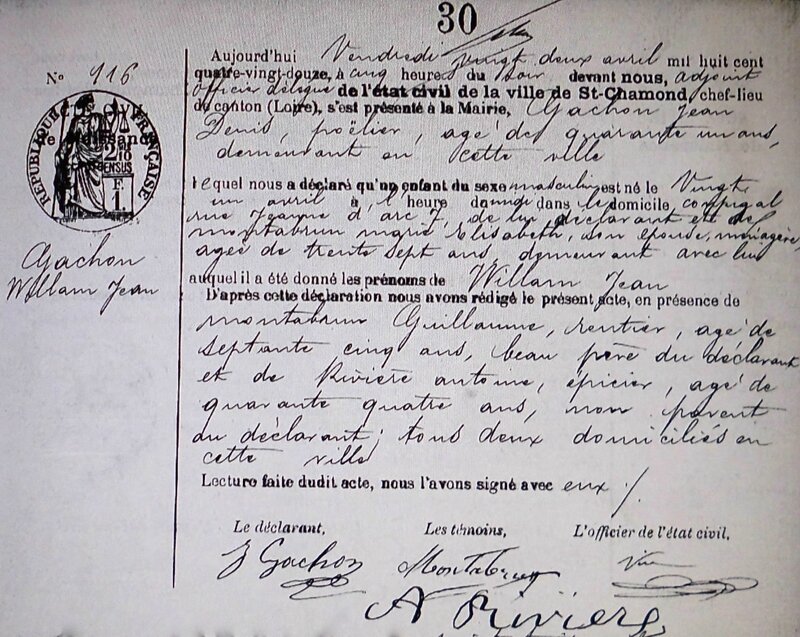 30
Nº 116
Aujourd'hui Vendredi vingt deux avril mil huit cent
quatre-vingt-douze, à cinq heures du soir devant nous, adjoint
officier délégué de l'état civil de la ville de St-Chamond, chef-lieu
de canton (Loire), s'est présenté à la Mairie, Gachon Jean
Denis, poëlier, agé de quarante un ans,
demeurant en cette ville
lequel nous a déclaré qu'un enfant du sexe masculin est né le Vingt
un avril à l'heure de midi dans le domicile, conjugal
rue Jeanne d'arc 7, de lui, déclarant et de
montabrun marie Elisabeth, son épouse, ménagère,
agée de trente sept ans, demeurant avec lui
auquel il a été donné les prénoms de Willam Jean
D'après cette déclaration nous avons rédigé le présent acte, en présence de
montabrun Guillaume, rentier, agé de
septante cinq ans, beau père du déclarant
et de Rivière antoine, épicier, agé de
quarante quatre ans, non parent
au déclarant; tous deux domiciliés en
cette ville
Lecture faite dudit acte, nous l'avons signé avec eux /.
Le déclarant, Les témoins, L'officier de l'état civil,
J Gachon Montabrun
A Rivière
Gachon
Willam Jean
RÉPUBLIQUE FRANÇAISE